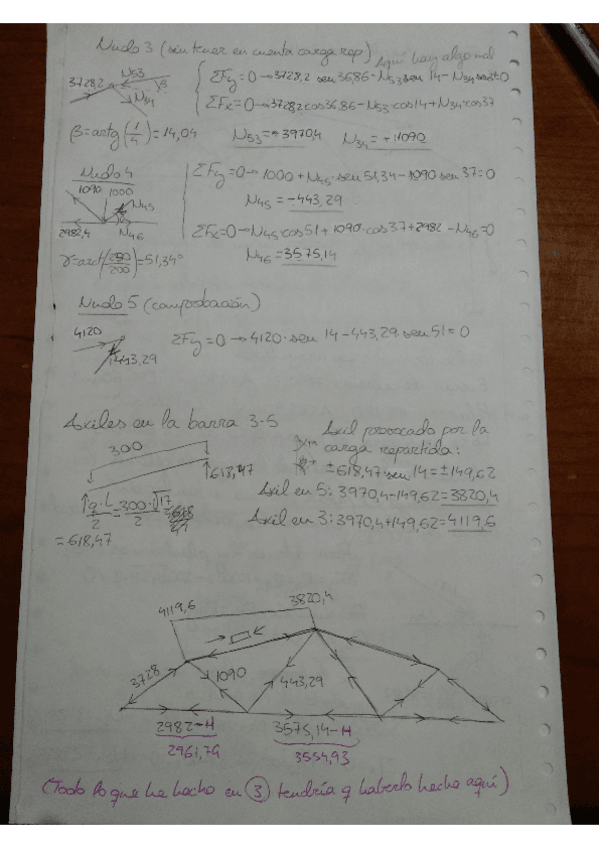 Nudo 3 (sin tener en cuenta carga rep) Aquí hay algo mal
37282 N53 β N34
ΣFy=0→37282 sen 36,86-N53 sen 14-N34 sen37=0
ΣFx=0→37282 cos 36,86-N53·cos14+N34·cos 37
β=artg(1/4)=14,04 N53=+3970,4 N34=+1090
Nudo 4
1090 1000
N45
2982,4 N46
ΣFy=0→1000+N45·sen 51,34-1090 sen 37=0
N45=-443,29
ΣFx=0→N45·cos51+1090·cos37+2982-N46=0
γ=arct(250/200)=51,34° N46=3575,14
Nudo 5 (comprobación)
4120
443,29
ΣFy=0→4120·sen 14-443,29·sen 51=0
Axiles en la barra 3-5
300
618,47
q·L/2=300·√17/2=618,47
=618,47
Axil provocado por la
carga repartida:
±618,47·sen 14=±149,62
Axil en 5: 3970,4-149,62=3820,4
Axil en 3: 3970,4+149,62=4119,6
4119,6 3820,4
3728 1090 443,29
2982-H 3575,14-H
2961,79 3554,93
(Todo lo que he hecho en ③ tendría q haberlo hecho aquí)